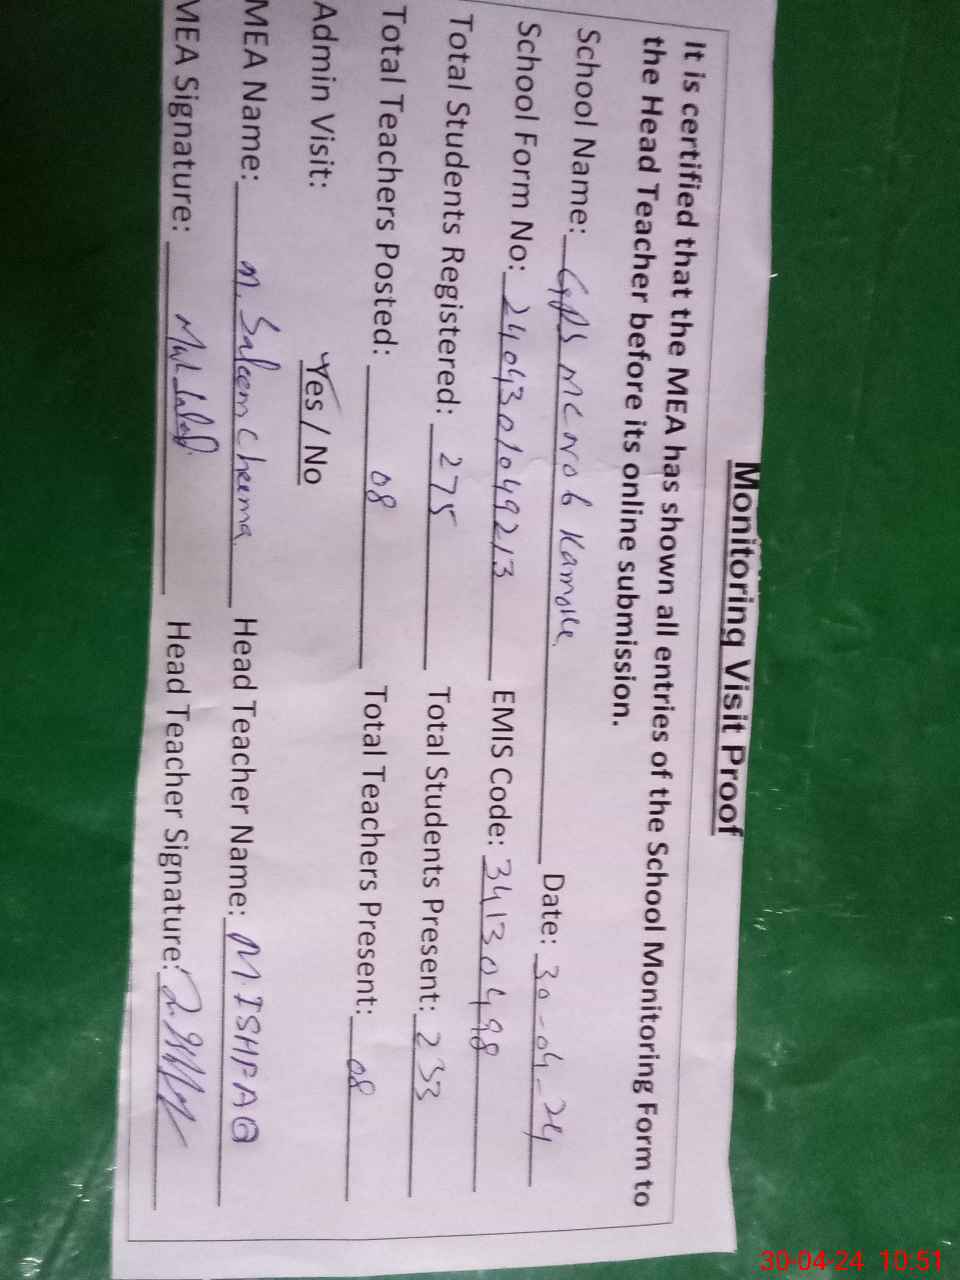 Monitoring Visit Proof
It is certified that the MEA has shown all entries of the School Monitoring Form to
the Head Teacher before its online submission.
School Name: GPS MC No 6 Kamoke Date: 30-04-24
School Form No: 2404301049213 EMIS Code: 34130498
Total Students Registered: 275 Total Students Present: 233
Total Teachers Posted: 08 Total Teachers Present: 08
Admin Visit: Yes / No
MEA Name: M. Saleem Cheema Head Teacher Name: M. ISHFAQ
MEA Signature: Head Teacher Signature:
30-04-24 10:51